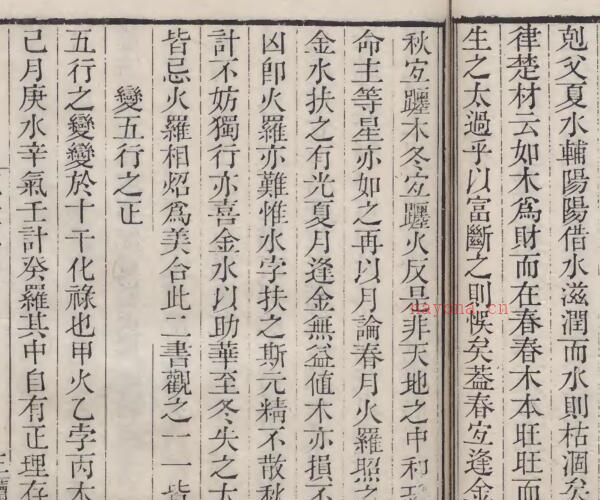 剋父夏水輔陽陽借水滋潤而水則枯涸矣
律楚材云如木爲財而在春春木本旺旺而
生之太過乎以富斷之則悞矣蓋春宐逢金
秋宐躔木冬宐躔火反是非天地之中和
命主等星亦如之再以月論春月火羅照之
金水扶之有光夏月逢金無益値木亦損不
凶卽火羅亦難惟水孛扶之斯元精不散秋
計不妨獨行亦喜金水以助華至冬失之太
皆忌火羅相炤爲美合此二書觀之一一皆
變五行之正
五行之變變於十干化祿也甲火乙孛丙木
己月庚水辛氣壬計癸羅其中自有正理存
nayona.cn